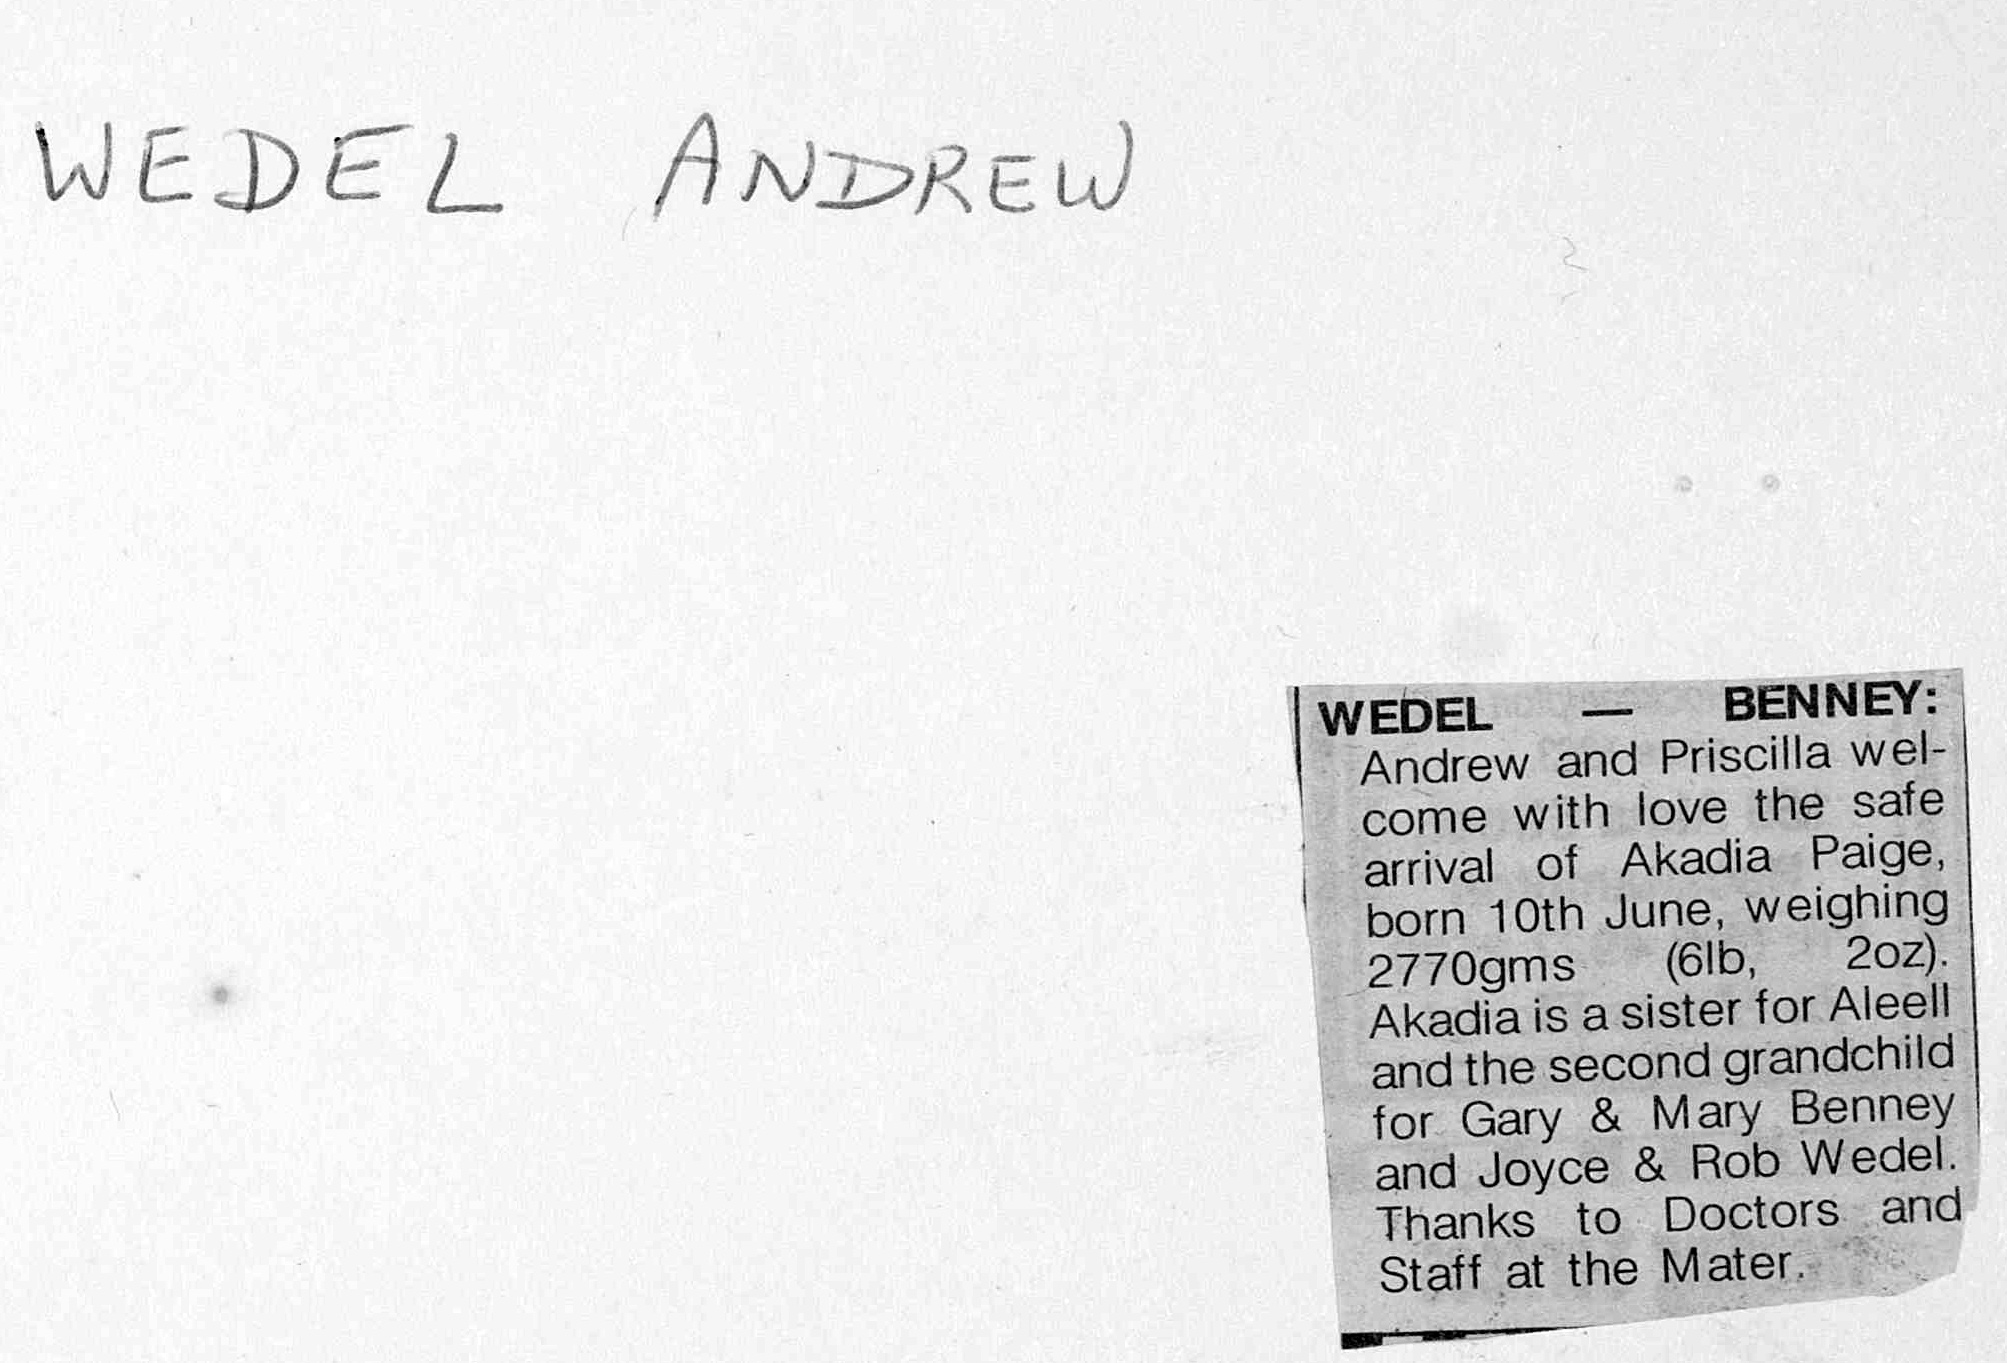 WEDEL ANDREW
WEDEL — BENNEY:
Andrew and Priscilla wel-
come with love the safe
arrival of Akadia Paige,
born 10th June, weighing
2770gms (6lb, 2oz).
Akadia is a sister for Aleell
and the second grandchild
for Gary & Mary Benney
and Joyce & Rob Wedel.
Thanks to Doctors and
Staff at the Mater.